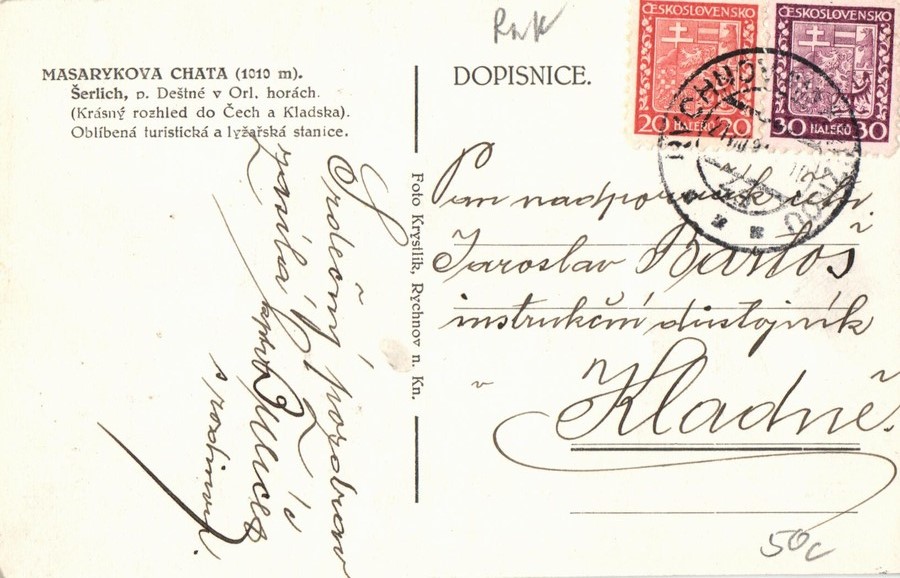 MASARYKOVA CHATA (1010 m).
Šerlich, p. Deštné v Orl. horách.
(Krásný rozhled do Čech a Kladska).
Oblíbená turistická a lyžařská stanice.
Srdečný pozdrav
zasílá Vás
s rodinou.
Foto Krystlik, Rychnov n. Kn.
DOPISNICE.
ČESKOSLOVENSKO
20 HALEŘŮ 20
ČESKOSLOVENSKO
30 HALEŘŮ 30
Pan nadporučík
Jaroslav Bartoš
instrukční důstojník
v Kladně.
50c